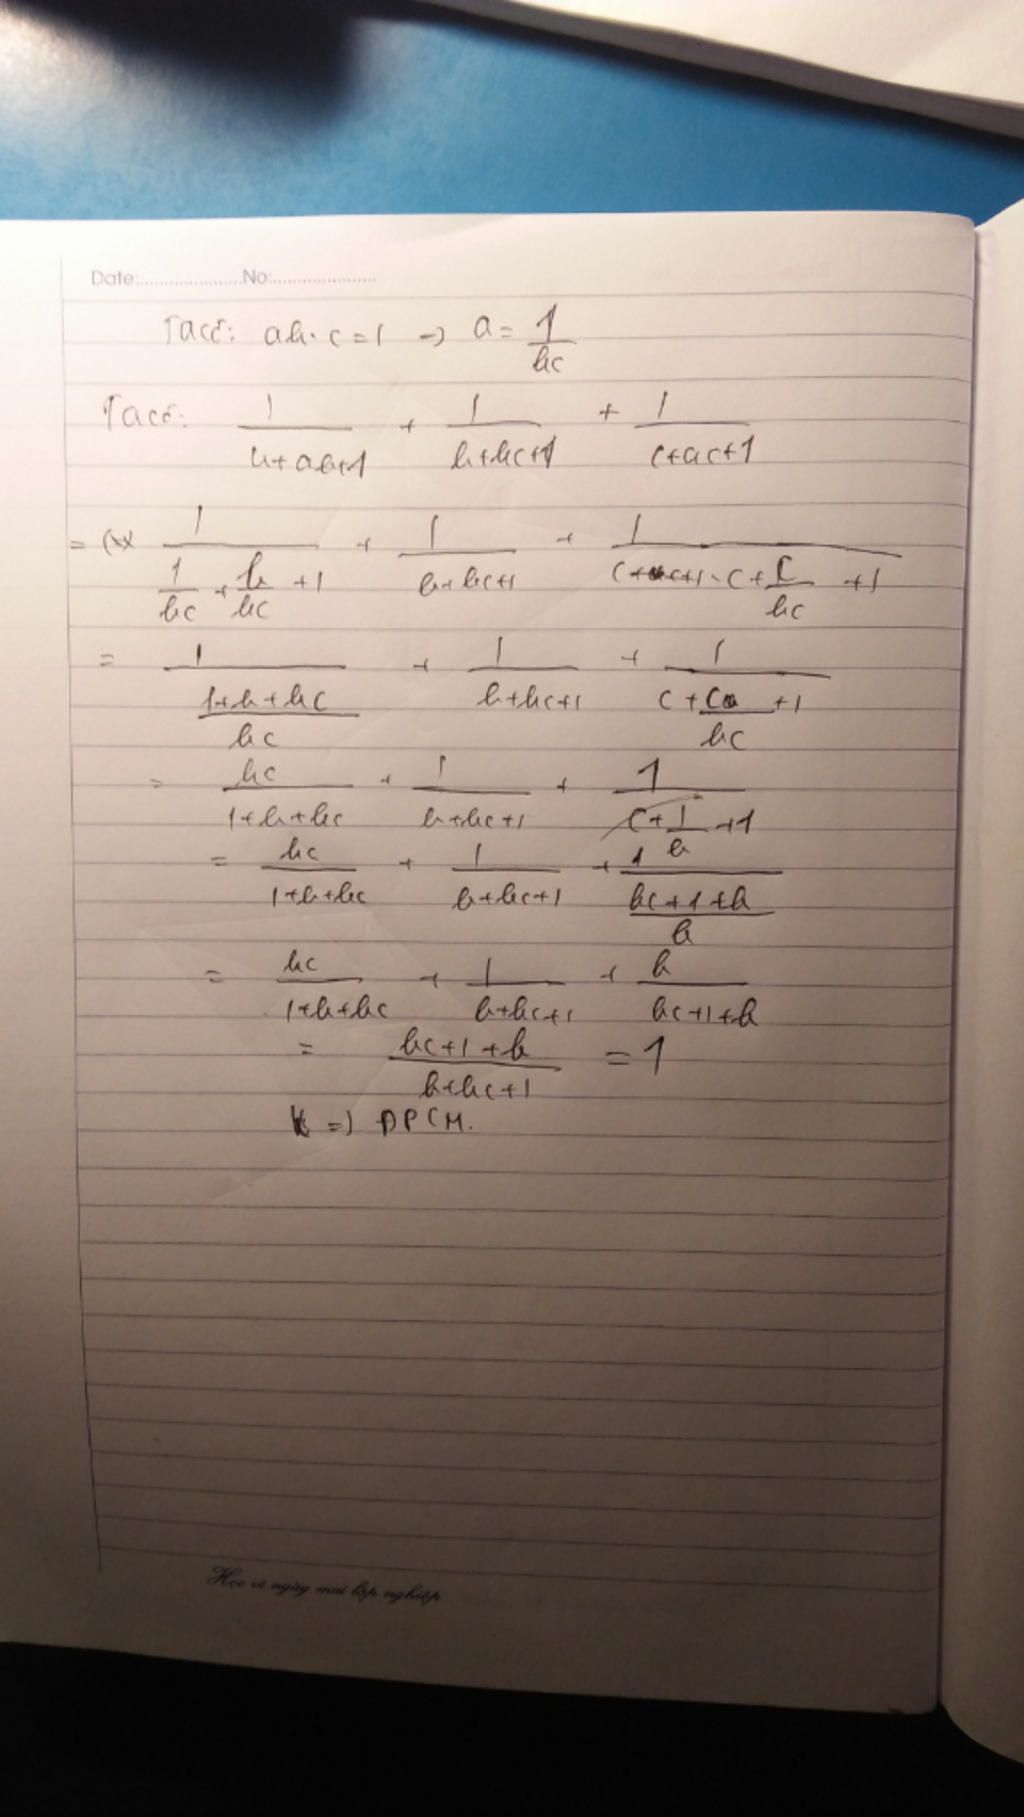 Date:.....................No:.....................
Ta có: ab.c=1 → a = 1/bc
Ta có: 1/(a+ab+1) + 1/(b+bc+1) + 1/(c+ac+1)
= 1/(1/bc + b/bc +1) + 1/(b+bc+1) + 1/(c + c/bc +1)
= 1/((1+b+bc)/bc) + 1/(b+bc+1) + 1/(c + c/bc +1)
= bc/(1+b+bc) + 1/(b+bc+1) + 1/(c + 1/b +1)
= bc/(1+b+bc) + 1/(b+bc+1) + 1/((bc+1+b)/b)
= bc/(1+b+bc) + 1/(b+bc+1) + b/(bc+1+b)
= (bc+1+b)/(b+bc+1) = 1
=) ĐPCM.
Học vì ngày mai lập nghiệp